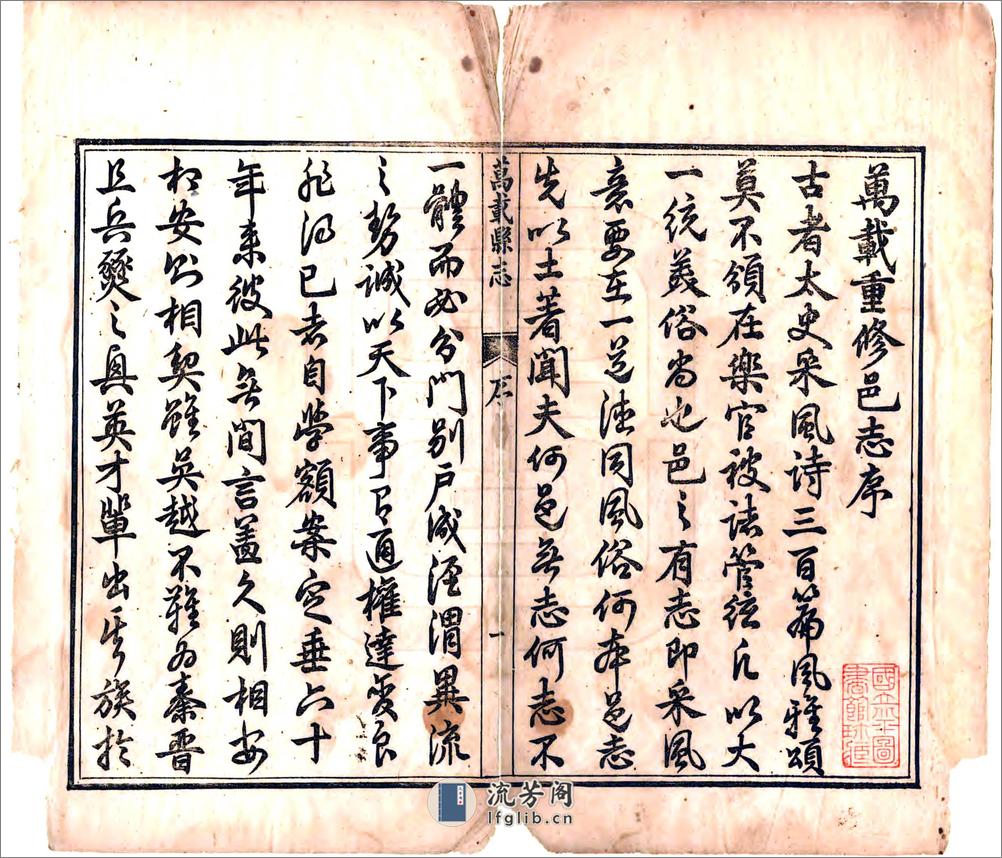 萬載重修邑志序
古者太史采風詩三百篇風雅頌
莫不領在樂官被諸管弦凡以大
一統美俗尚也邑之有志即采風
意要在一道德同風俗何本邑志
先以土著聞夫何邑無志何志不
萬載縣志 序 一
一體而必分門別戶成涇渭異流
之勢誠以天下事有通權達變良
非得已者自學額案定垂六十
年來彼此無間言蓋久則相安
相安則相契雖吳越不難為秦晉
且兵燹之興英才輩出其族於
國立北平圖
書館珍藏
流芳阁
lfglib.cn